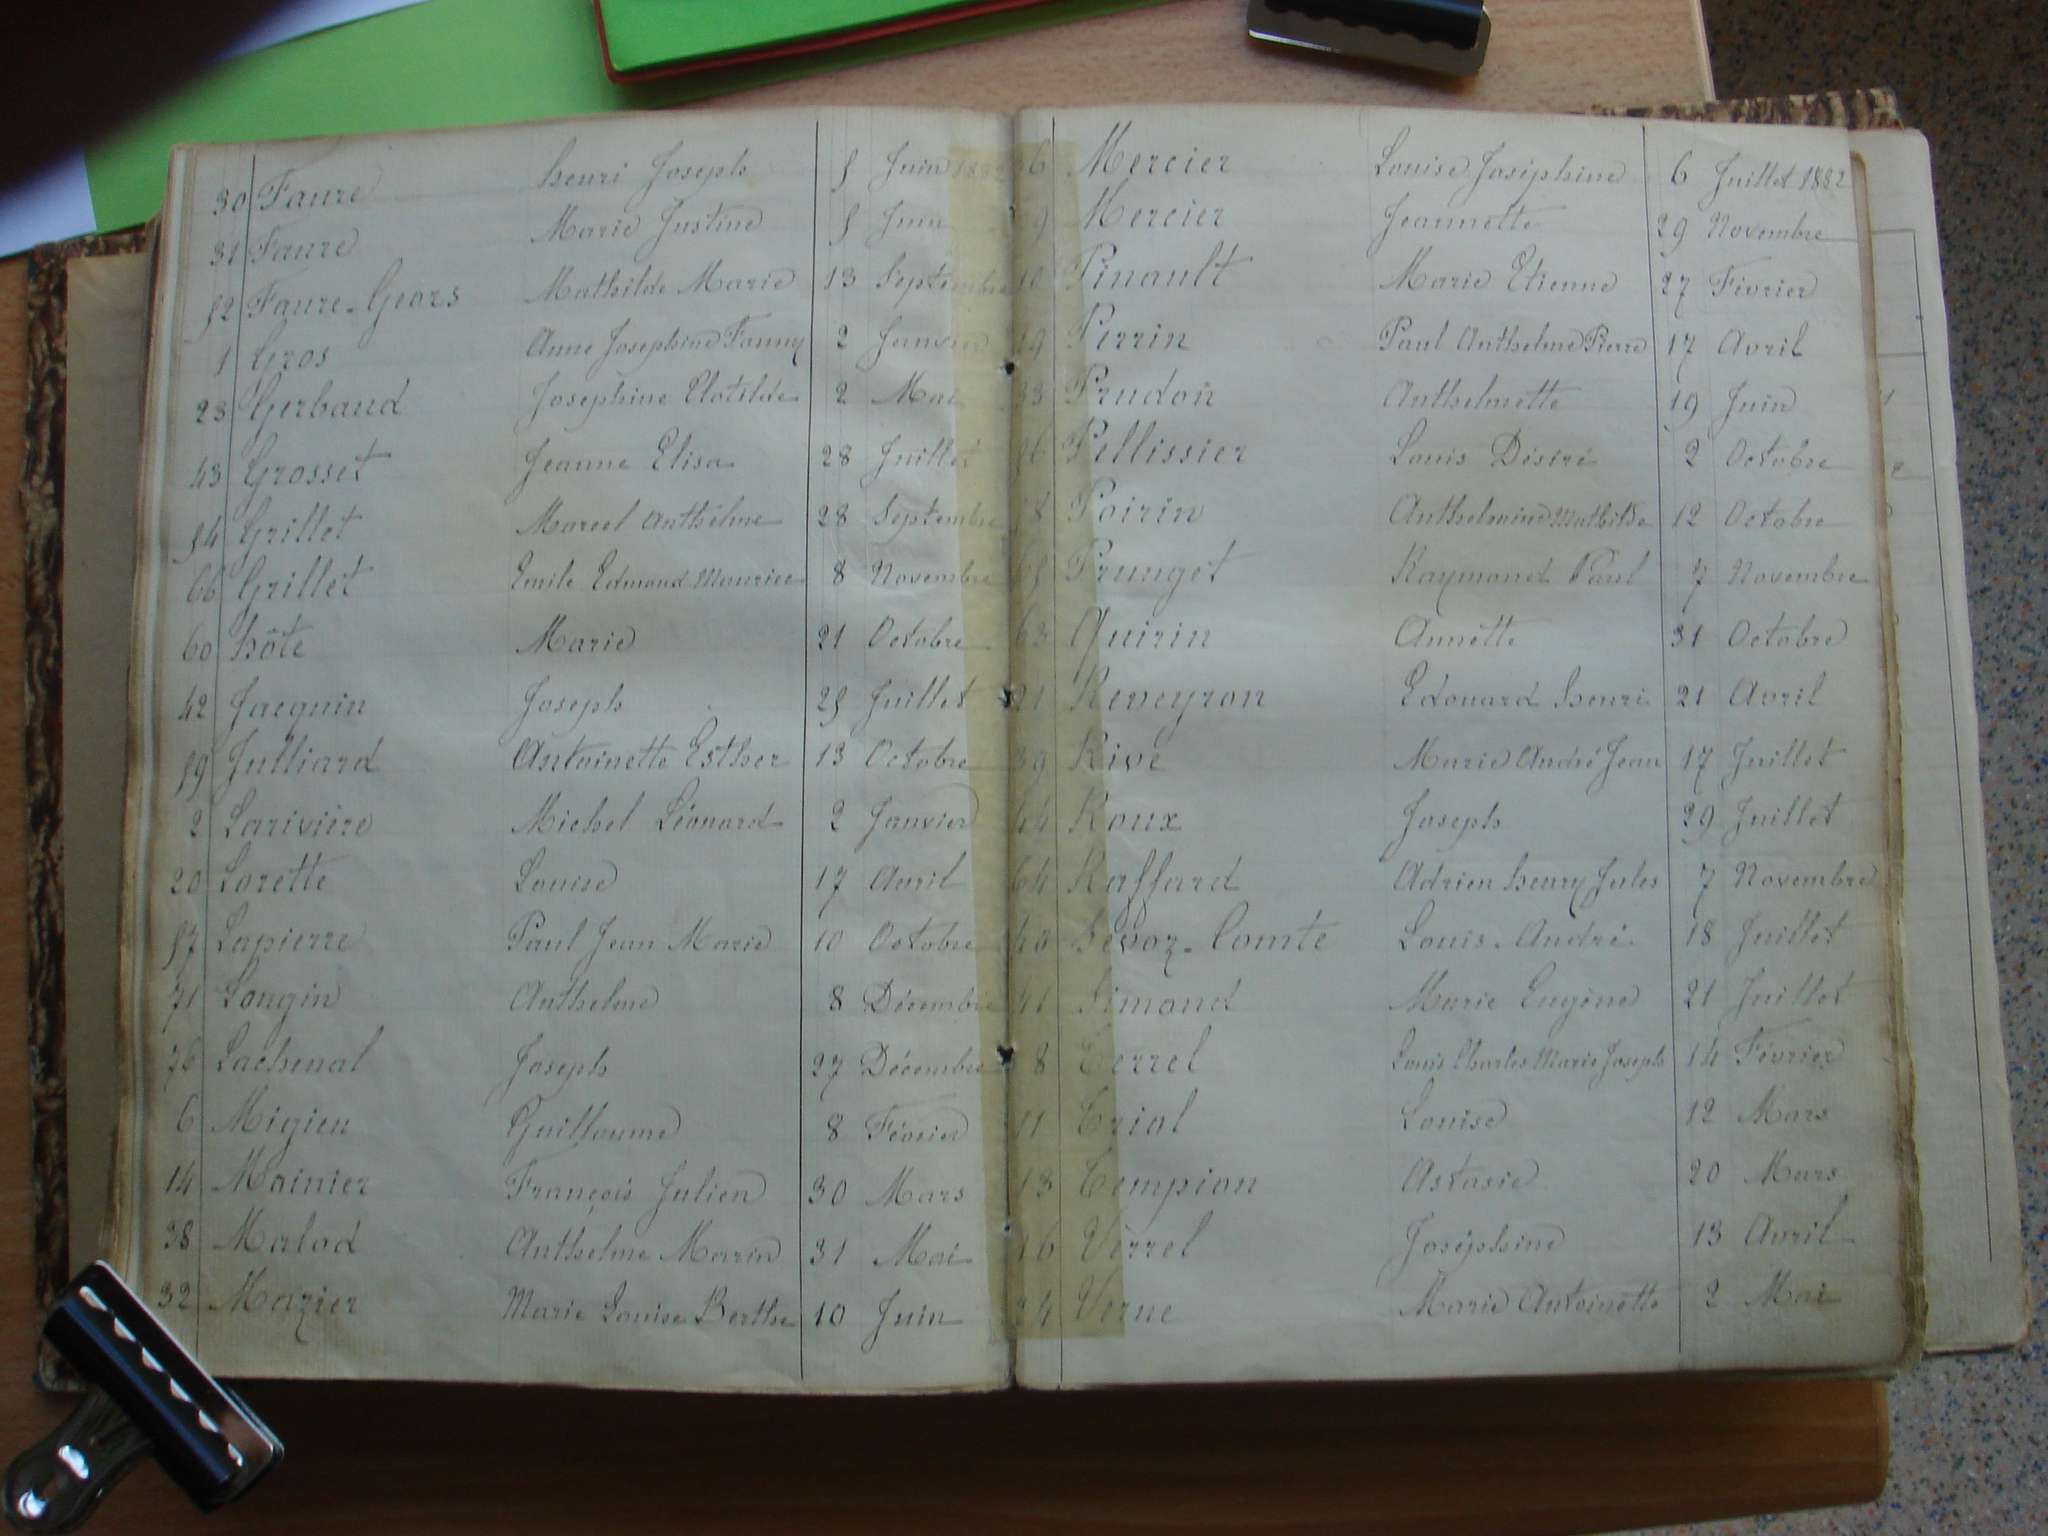 30 Faure Henri Joseph 5 Juin 1882
31 Faure Marie Justine 5 Juin
52 Faure-Geors Mathilde Marie 13 Septembre
1 Gros Anne Josephine Fanny 2 Janvier
23 Gerbaud Josephine Clotilde 2 Mai
43 Grosset Jeanne Elisa 28 Juillet
54 Grillet Marcel Anthelme 28 Septembre
66 Grillet Emile Edmond Maurice 8 Novembre
60 Hôte Marie 21 Octobre
42 Jacquin Joseph 25 Juillet
59 Julliard Antoinette Esther 13 Octobre
2 Larivière Michel Léonard 2 Janvier
20 Lorette Louise 17 Avril
57 Lapierre Paul Jean Marie 10 Octobre
71 Longin Anthelme 8 Décembre
76 Lachenal Joseph 27 Décembre
6 Migieu Guillaume 8 Février
14 Mainier François Julien 30 Mars
38 Malod Anthelme Marin 31 Mai
32 Mazier Marie Louise Berthe 10 Juin
36 Mercier Louise Joséphine 6 Juillet 1882
Mercier Jeannette 29 Novembre
10 Pinault Marie Etienne 27 Février
19 Perrin Paul Anthelme Pierre 17 Avril
33 Prudon Anthelmette 19 Juin
56 Pellissier Louis Désiré 2 Octobre
58 Poirin Anthelmine Mathilde 12 Octobre
65 Prunget Raymond Paul 7 Novembre
63 Quirin Annette 31 Octobre
21 Reveyron Edouard Henri 21 Avril
39 Rive Marie André Jean 17 Juillet
44 Roux Joseph 29 Juillet
64 Raffard Adrien Henry Jules 7 Novembre
40 Sevoz-Comte Louis-André 18 Juillet
41 Simond Marie Eugène 21 Juillet
8 Terrel Louis Charles Marie Joseph 14 Février
11 Trial Louise 12 Mars
13 Tempion Astasie 20 Mars
16 Verrel Joséphine 13 Avril
24 Verne Marie Antoinette 2 Mai